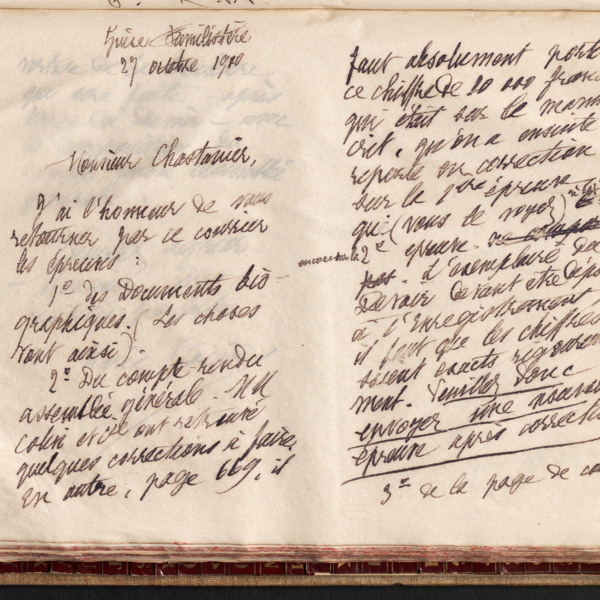 Guise Familistère
27 octobre 1900
Monsieur Chastanier,
J'ai l'honneur de vous
retourner par ce courrier
les épreuves :
1º des Documents bio-
graphiques. (Les choses
vont ainsi).
2º Du compte-rendu
assemblée générale. MM
Colin et Cie ont retrouvé
quelques corrections à faire,
En outre, page 669, il
faut absolument porte
ce chiffre de 10 000 franc
qui était sur le manus
crit, qu'on a ensuite
reporté en correction
sur la 1ère épreuve
que (vous le voyez)
encore sur la 2e épreuve.
pas. L'exemplaire du
Devoir devant être dépo
à l'Enregistrement
il faut que les chiffres
soient exacts rigoureuse
ment. Veuillez donc
envoyer une nouvelle
épreuve après correction
3º de la page de co